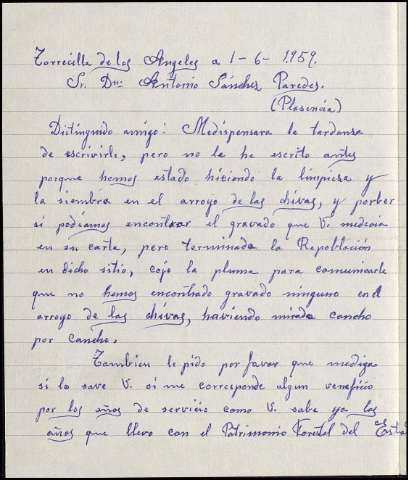 Torrecilla de los Angeles a 1-6-1.959.
Sr. Dn: Antonio Sánchez Paredes.
(Plasencia)
Distinguido amigo: Medispensara la tardanza
de escrivirle, pero no le he escrito antes
porque hemos estado hiciendo la limpiesa y
la siembra en el arroyo de las chivas, y porber
si podiamos encontrar el gravado que V. medecia
en su carta, pero terminada la Repoblación
en dicho sitio, cojo la pluma para comunicarle
que no hemos encontrado gravado ninguno en el
arroyo de las chivas, haviendo mirado cancho
por cancho.
Tambien le pido por favor que mediga
si lo save V. si me corresponde algun veneficio
por los años de servicio como V. sabe ya los
años que llevo con el Patrimonio Forestal del Esta